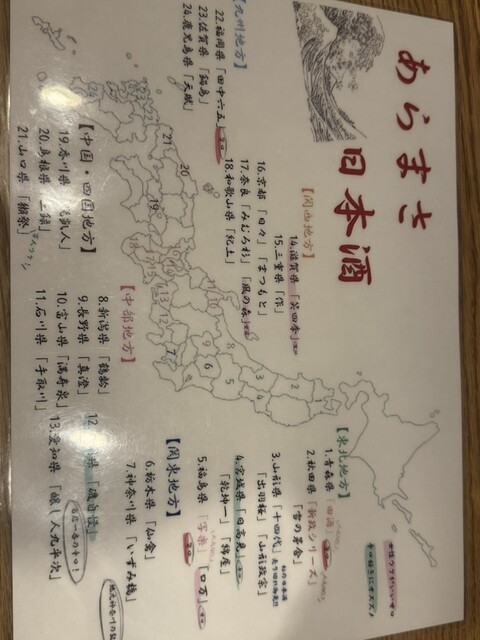 あらまさ
日本酒
【東北地方】
1.青森県「田酒」
2.秋田県「新政シリーズ」
「雪の茅舎」
3.山形県「十四代」
「出羽桜」「山形政宗」
4.宮城県「日高見」
「乾坤一」「綿屋」
5.福島県「写楽」「ロ万」
【関東地方】
6.栃木県「仙禽」
7.神奈川県「いずみ橋」
【中部地方】
8.新潟県「鶴齢」
9.長野県「真澄」
10.富山県「満寿泉」
11.石川県「手取川」
12.
「磯自慢」
13.愛知県「醸し人九平次」
【関西地方】
14.滋賀県「笑四季」
15.三重県「作」
16.京都「日々」「まつもと」
17.奈良「みむろ杉」「風の森」
18.和歌山県「紀土」
【中国・四国地方】
19.香川県「悦凱人」
20.島根県「王祿」
21.山口県「獺祭」
【九州地方】
22.福岡県「田中六五」
23.佐賀県「鍋島」
24.鹿児島県「天賦」